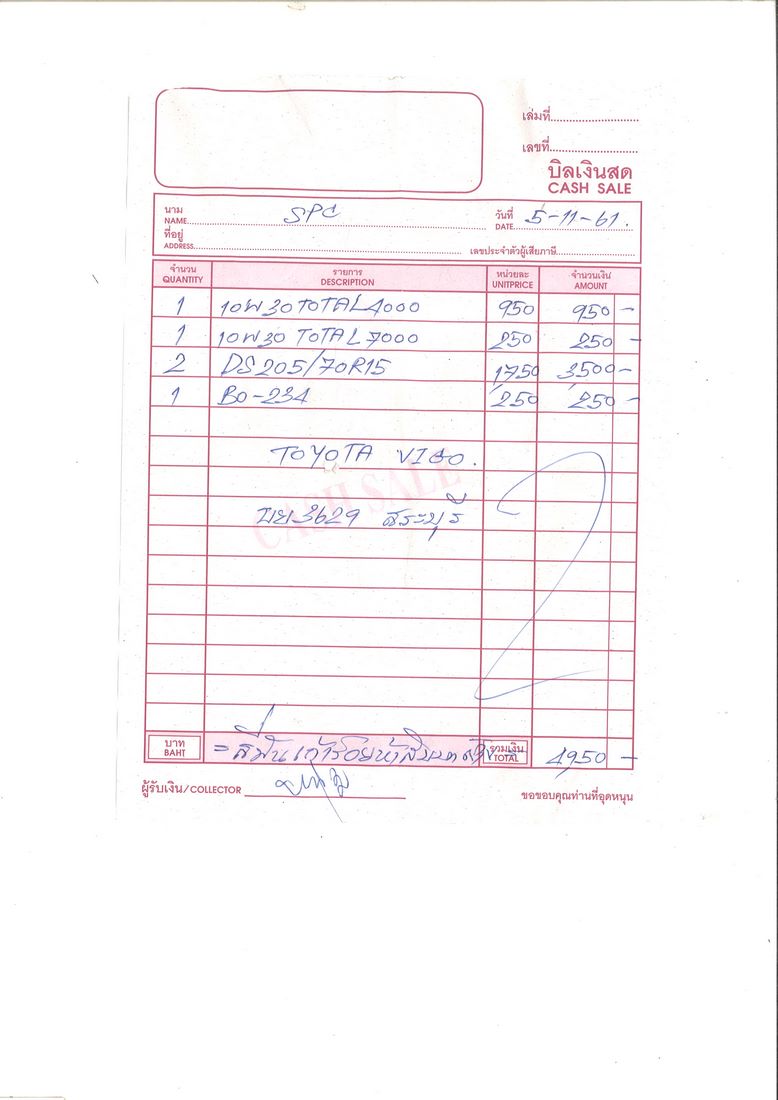 เล่มที่
เลขที่
บิลเงินสด
CASH SALE
นาม NAME SPC วันที่ DATE 5-11-61.
ที่อยู่ ADDRESS เลขประจำตัวผู้เสียภาษี
จำนวน QUANTITY รายการ DESCRIPTION หน่วยละ UNITPRICE จำนวนเงิน AMOUNT
1 10W30 TOTAL 4000 950 950 -
1 10W30 TOTAL 7000 250 250 -
2 DS 205/70R15 1750 3500 -
1 BO-234 250 250 -
TOYOTA VIGO.
CASH SALE
บย 3629 สระบุรี
บาท BAHT = สี่พันเก้าร้อยห้าสิบบาทถ้วน รวมเงิน TOTAL 4950 -
ผู้รับเงิน/COLLECTOR
ขอขอบคุณท่านที่อุดหนุน